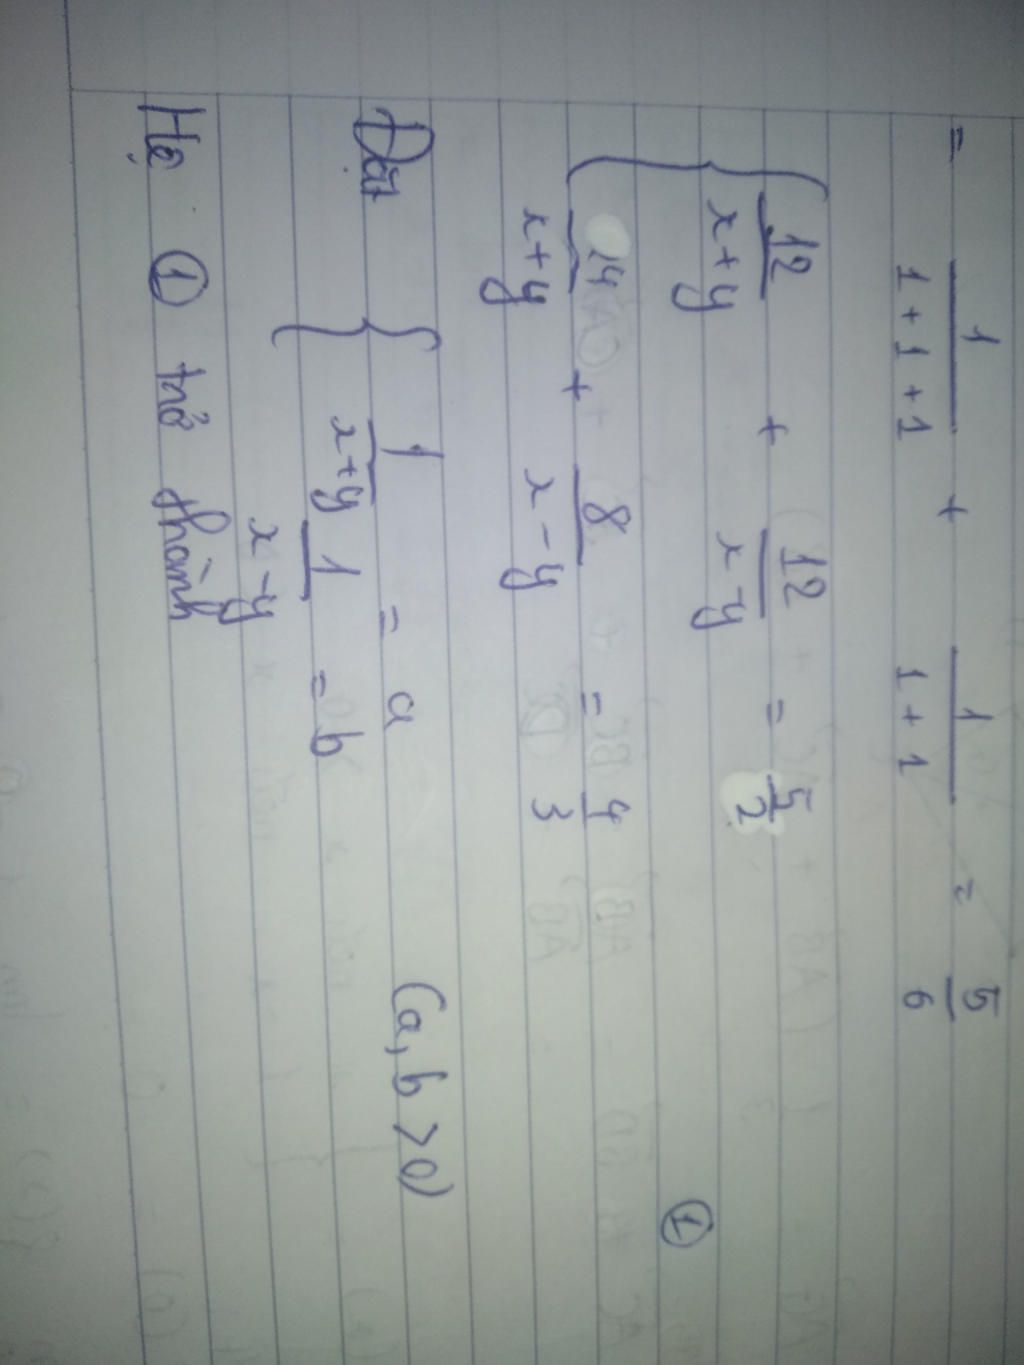 = 1/(1 + 1 + 1) + 1/(1 + 1) = 5/6
{ 12/(x+y) + 12/(x-y) = 5/2
①
4/(x+y) + 8/(x-y) = 4/3
Đặt { 1/(x+y) = a (a, b > 0)
1/(x-y) = b
Hệ ① trở thành